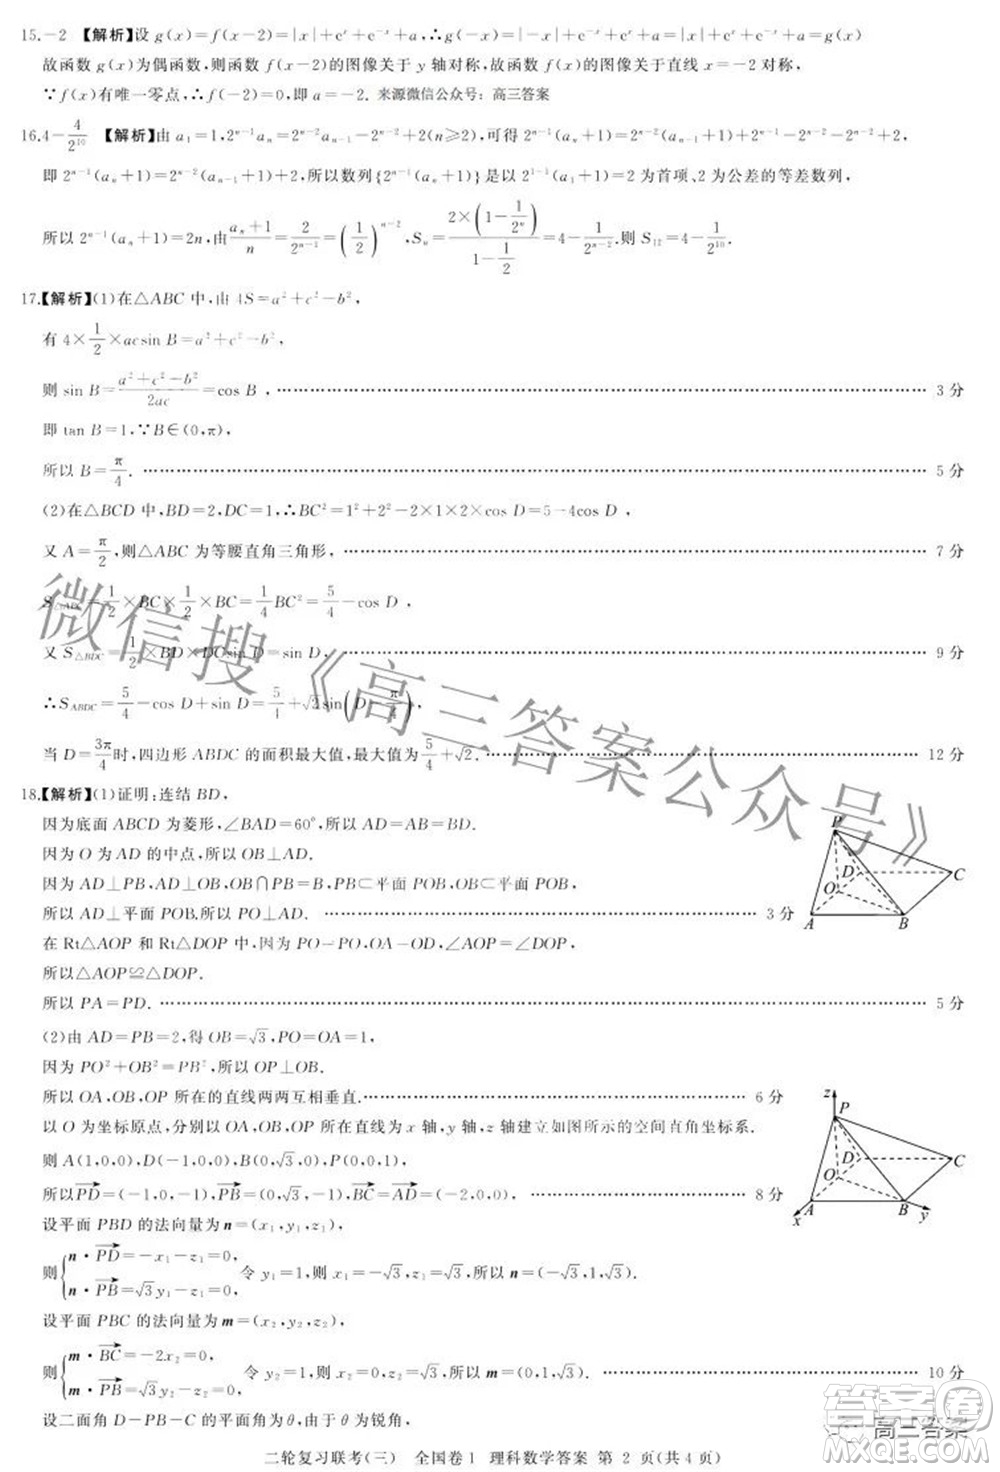 15.-2 【解析】设 g(x)=f(x-2)=|x|+eˣ+e⁻ˣ+a,∴g(-x)=|-x|+e⁻ˣ+eˣ+a=g(x)
故函数 g(x)为偶函数,则函数 f(x-2)的图像关于 y 轴对称,所以函数 f(x)的图像关于直线 x=-2 对称,
∵f(x)有唯一零点,∴f(-2)=0,即 a=-2. 来源微信公众号:高三答案
16.4-4/2¹⁰ 【解析】由 a₁=1,2ⁿ⁻¹aₙ=2ⁿ⁻²aₙ₋₁-2ⁿ⁻²+2(n≥2),可得 2ⁿ⁻¹(aₙ+1)=2ⁿ⁻²(aₙ₋₁+1)+2ⁿ⁻¹-2ⁿ⁻²-2ⁿ⁻²+2,
即 2ⁿ⁻¹(aₙ+1)=2ⁿ⁻²(aₙ₋₁+1)+2,所以数列{2ⁿ⁻¹(aₙ+1)}是以 2¹⁻¹(a₁+1)=2 为首项、2 为公差的等差数列,
所以 2ⁿ⁻¹(aₙ+1)=2n,由(aₙ+1)/n=2/2ⁿ⁻¹=(1/2)ⁿ⁻²,Sₙ=2×(1-1/2ⁿ)/(1-1/2)=4-1/2ⁿ⁻².则 S₁₂=4-1/2¹⁰.
17.【解析】(1)在△ABC 中,由 4S=a²+c²-b²,
有 4×1/2×acsin B=a²+c²-b²,
则 sin B=(a²+c²-b²)/2ac=cos B, 3 分
即 tan B=1,∵B∈(0,π),
所以 B=π/4. 5 分
(2)在△BCD 中,BD=2,DC=1,∴BC²=1²+2²-2×1×2×cos D=5-4cos D,
又 A=π/2,则△ABC 为等腰直角三角形, 7 分
S△ABC=1/2×BC×1/2×BC=1/4BC²=5/4-cos D,
又 S△BDC=1/2×BD×DCsin D=sin D, 9 分
∴S_ABDC=5/4-cos D+sin D=5/4+√2sin(D-π/4),
当 D=3π/4时,四边形 ABDC 的面积最大值,最大值为5/4+√2. 12 分
18.【解析】(1)证明:连结 BD,
因为底面 ABCD 为菱形,∠BAD=60°,所以 AD=AB=BD.
因为 O 为 AD 的中点,所以 OB⊥AD.
因为 AD⊥PB,AD⊥OB,OB∩PB=B,OB,PB⊂平面 POB,
所以 AD⊥平面 POB.所以 PO⊥AD. 3 分
在 Rt△AOP 和 Rt△DOP 中,因为 PO=PO,OA=OD,∠AOP=∠DOP,
所以△AOP≌△DOP.
所以 PA=PD. 5 分
P
D
C
O
A
B
(2)由 AD=PB=2,得 OB=√3,PO=OA=1,
因为 PO²+OB²=PB²,所以 PO⊥OB.
所以 OA,OB,OP 所在的直线两两互相垂直. 6 分
以 O 为坐标原点,分别以 OA,OB,OP 所在直线为 x 轴,y 轴,z 轴建立如图所示的空间直角坐标系.
则 A(1,0,0),D(-1,0,0),B(0,√3,0),P(0,0,1),
所以PD=(-1,0,-1),PB=(0,√3,-1),BC=AD=(-2,0,0), 8 分
z
P
D
C
O
A
B
x
y
设平面 PBD 的法向量为 n=(x₁,y₁,z₁),
则{n·PD=-x₁-z₁=0, n·PB=√3y₁-z₁=0, 令 y₁=1,则 x₁=-√3,z₁=√3,所以 n=(-√3,1,√3).
设平面 PBC 的法向量为 m=(x₂,y₂,z₂),
则{m·BC=-2x₂=0, m·PB=√3y₂-z₂=0, 令 y₂=1,则 x₂=0,z₂=√3,所以 m=(0,1,√3). 10 分
设二面角 D-PB-C 的平面角为θ,由于θ为锐角,
二轮复习联考(三) 全国卷1 理科数学答案 第 2 页(共 4 页)
微信搜《高三答案公众号》
答案圈
高三答案